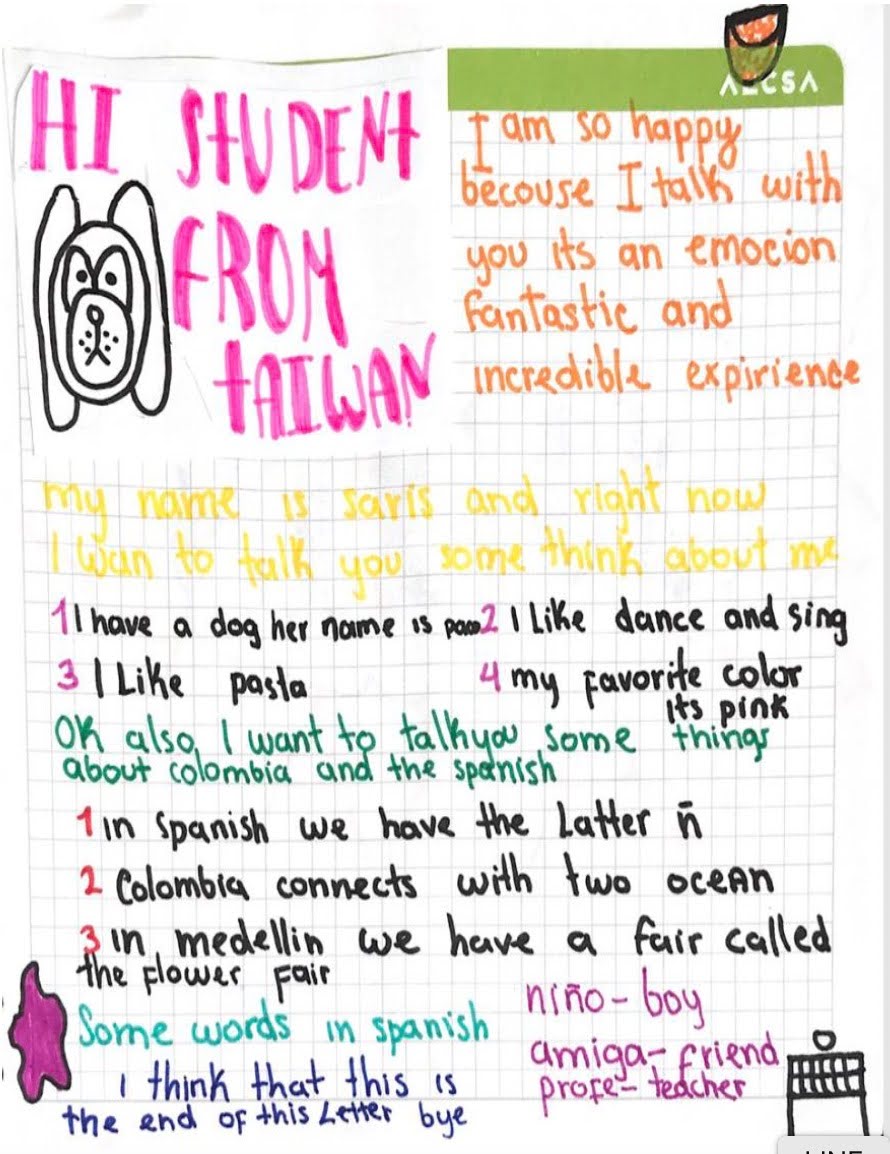 HI STUDENT
FROM
TAIWAN
I am so happy
becouse I talk with
you its an emocion
fantastic and
incredible expirience
my name is saris and right now
I wan to talk you some think about me
1 I have a dog her name is
2 I Like dance and sing
3 I Like pasta
4 my favorite color
its pink
OK also, I want to talk you some things
about colombia and the spanish
1 in spanish we have the Latter ñ
2 Colombia connects with two ocean
3 in medellin we have a fair called
the flower fair
Some words in spanish
niño - boy
amiga - friend
profe - teacher
I think that this is
the end of this Letter bye